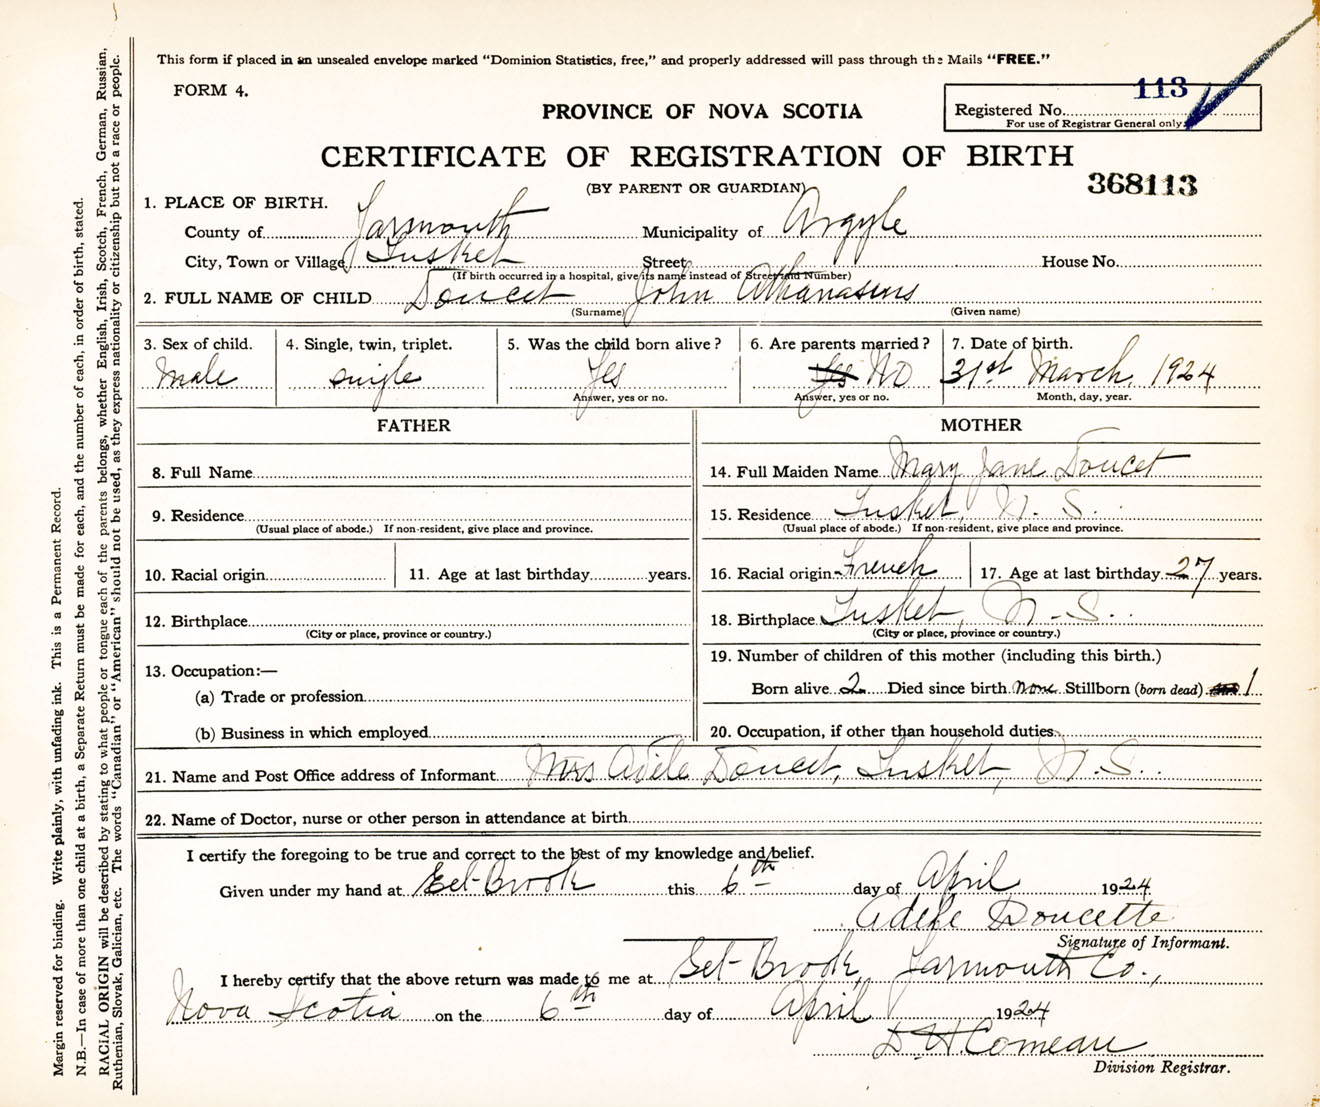 This form if placed in an unsealed envelope marked "Dominion Statistics, free," and properly addressed will pass through the Mails "FREE."
FORM 4.
PROVINCE OF NOVA SCOTIA
113
Registered No.
For use of Registrar General only.
CERTIFICATE OF REGISTRATION OF BIRTH
(BY PARENT OR GUARDIAN)
368113
1. PLACE OF BIRTH.
County of Yarmouth Municipality of Argyle
City, Town or Village Tusket Street House No.
(If birth occurred in a hospital, give its name instead of Street and Number)
2. FULL NAME OF CHILD Doucet John Athanasius
(Surname) (Given name)
3. Sex of child. 4. Single, twin, triplet. 5. Was the child born alive? 6. Are parents married? 7. Date of birth.
Male single Yes Yes No 31st March, 1924
Answer, yes or no. Answer, yes or no. Month, day, year.
FATHER MOTHER
8. Full Name 14. Full Maiden Name Mary Jane Doucet
9. Residence 15. Residence Tusket, N. S.
(Usual place of abode.) If non-resident, give place and province. (Usual place of abode.) If non-resident, give place and province.
10. Racial origin 11. Age at last birthday years. 16. Racial origin French 17. Age at last birthday 27 years.
12. Birthplace 18. Birthplace Tusket, N-S.
(City or place, province or country.) (City or place, province or country.)
13. Occupation:— 19. Number of children of this mother (including this birth.)
(a) Trade or profession Born alive 2 Died since birth None Stillborn (born dead) 1
(b) Business in which employed 20. Occupation, if other than household duties
21. Name and Post Office address of Informant Mrs Adele Doucet, Tusket, N.S.
22. Name of Doctor, nurse or other person in attendance at birth
I certify the foregoing to be true and correct to the best of my knowledge and belief.
Given under my hand at Eel-Brook this 6th day of April 1924
Adele Doucette
Signature of Informant.
I hereby certify that the above return was made to me at Eel-Brook, Yarmouth Co.,
Nova Scotia on the 6th day of April 1924
D H Comeau
Division Registrar.
Margin reserved for binding. Write plainly, with unfading ink. This is a Permanent Record.
N.B.—In case of more than one child at a birth, a Separate Return must be made for each, and the number of each, in order of birth, stated.
RACIAL ORIGIN will be described by stating to what people or tongue each of the parents belongs, whether English, Irish, Scotch, French, German, Russian,
Ruthenian, Slovak, Galician, etc. The words "Canadian" or "American" should not be used, as they express nationality or citizenship but not a race or people.